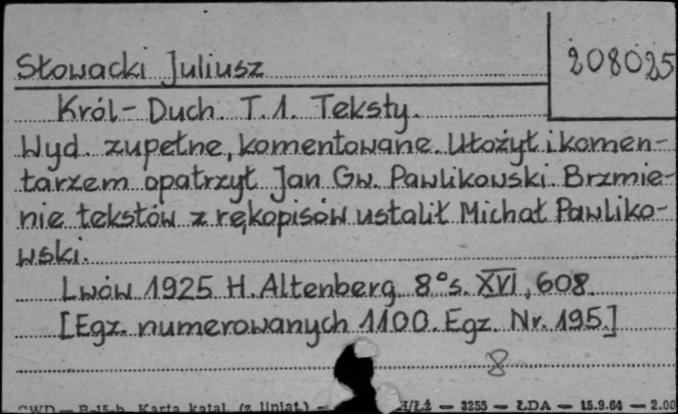 Słowacki Juliusz
208025
Król-Duch. T.1. Teksty.
Wyd. zupełne, komentowane. Ułożył i komen-
tarzem opatrzył Jan Gw. Pawlikowski. Brzmie-
nie tekstów z rękopisów ustalił Michał Pawliko-
wski.
Lwów 1925 H. Altenberg 8° s. XVI, 608.
[Egz. numerowanych 1100. Egz. Nr. 195.]
8
CWD — B-15-b Karta katal. (z liniat.) — H/Łż — 3255 — ŁDA — 15.9.64 — 2.00